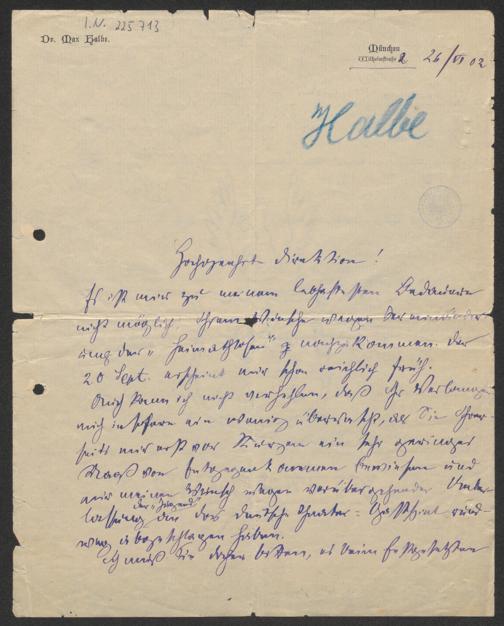 I.N. 225 713
Dr. Max Halbe.
München
Wilhelmstraße 2 26/VI 02
Halbe
Hochgeehrte Direktion!
Es ist mir zu meinem lebhaftesten Bedauern
nicht möglich, Ihrem Wunsche wegen
der „Heimathlosen" nachzukommen. Der
20 Sept. erscheint mir schon reichlich früh.
Auch kann ich nicht verhehlen, daß Ihr Verlangen
mich insofern ein wenig überrascht, als Sie Ihrer-
seits mir erst vor Kurzem ein sehr geringes
Maaß von Entgegenkommen bewiesen und
mir meinen Wunsch wegen vorübergehender Ueber-
lassung der „Jugend" an das deutsche Theater-Gastspiel rund-
weg abgeschlagen haben.
Ich muß Sie daher bitten, es beim Festgesetzten